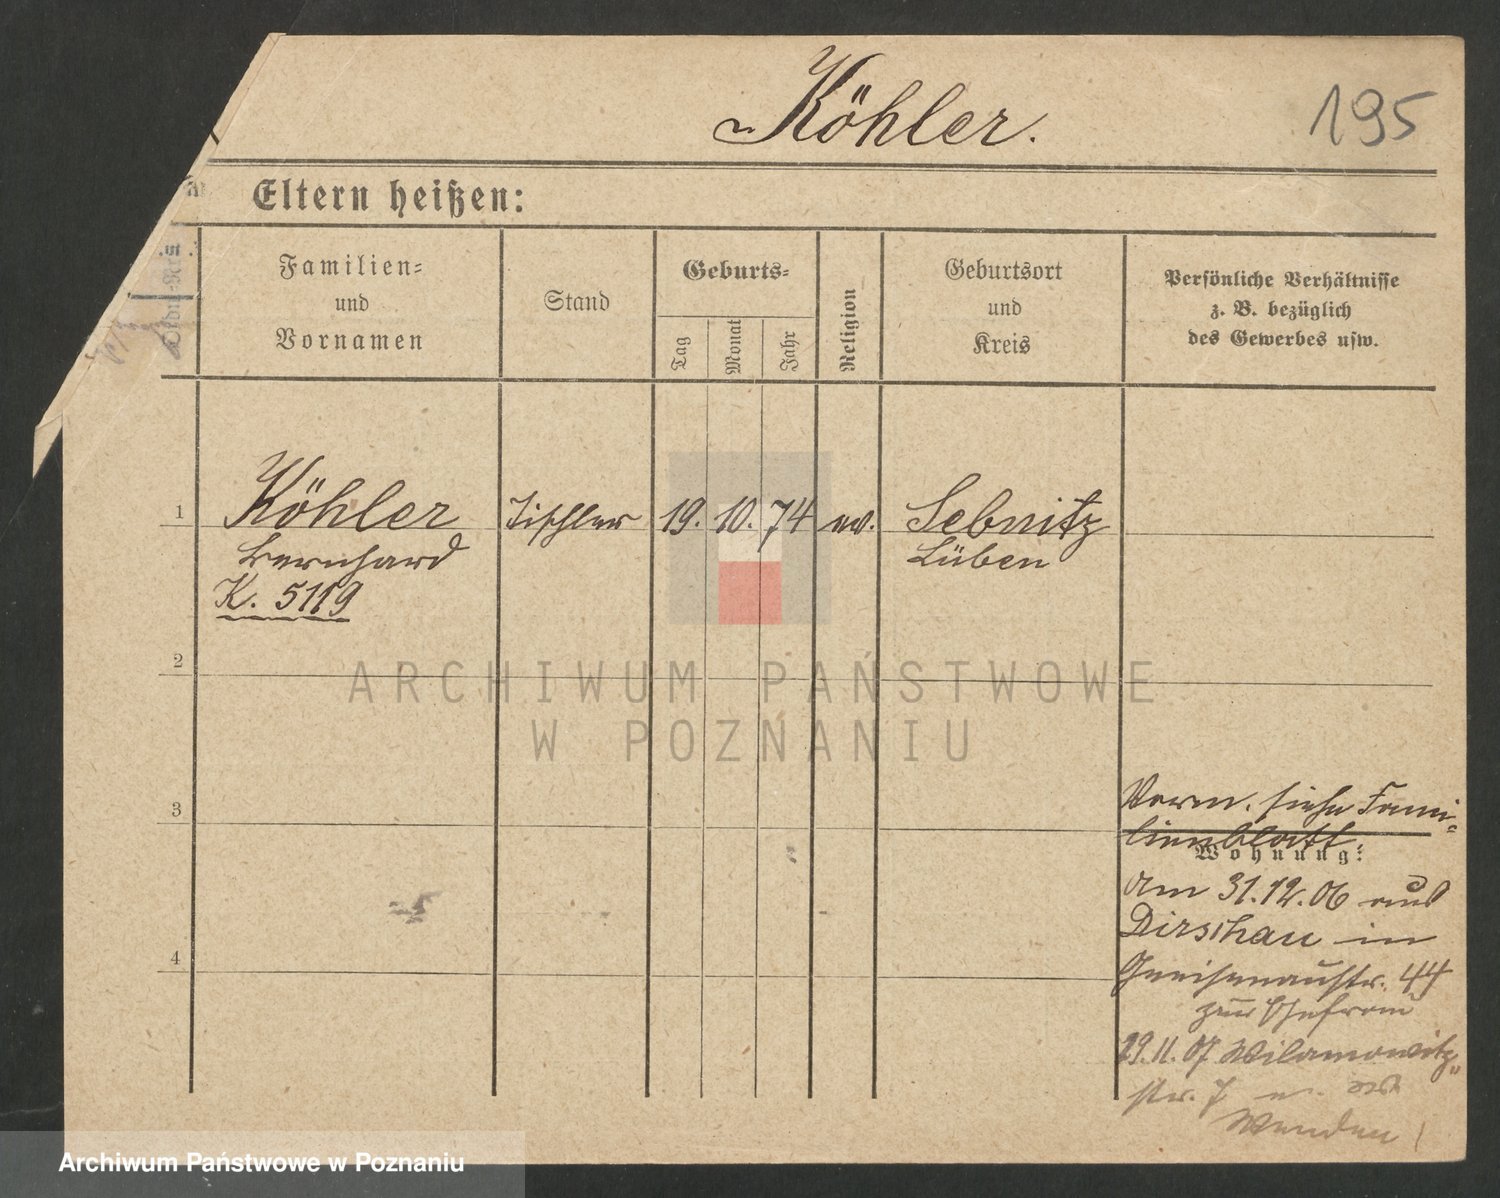 Köhler.
195
Eltern heißen:
Familien-
und
Vornamen
Stand
Geburts-
Tag
Monat
Jahr
Religion
Geburtsort
und
Kreis
Persönliche Verhältnisse
z. B. bezüglich
des Gewerbes usw.
1
Köhler
Bernhard
K. 5119
Tischler
19.
10.
74
ev.
Sebnitz
Lüben
2
3
4
Verm. siehe Fami-
lienblatt.
Wohnung:
Am 31.12.06 aus
Dirschau in
Gneisenaustr. 44
zur Ehefrau
29.11.07 Wilamowitz-
str. 7
ARCHIWUM PAŃSTWOWE
W POZNANIU
Archiwum Państwowe w Poznaniu